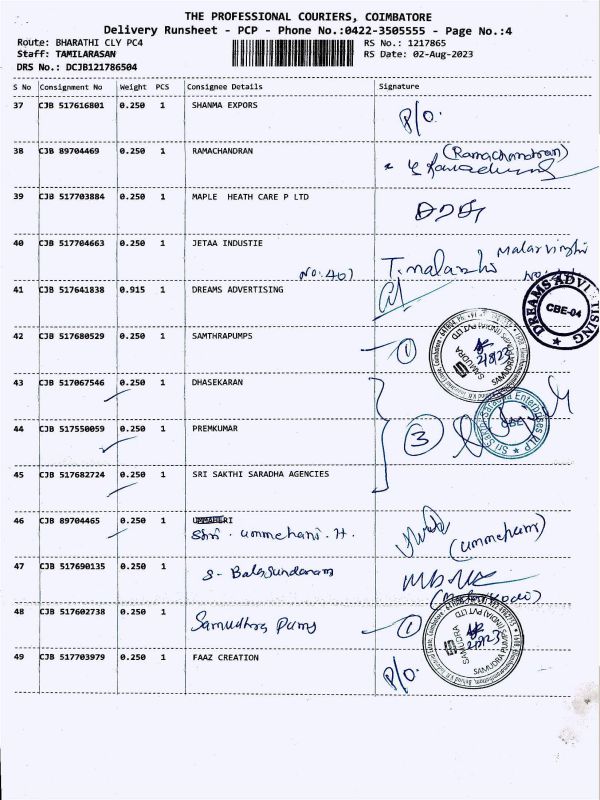 THE PROFESSIONAL COURIERS, COIMBATORE
Delivery Runsheet - PCP - Phone No.:0422-3505555 - Page No.:4
Route: BHARATHI CLY PC4 RS No.: 1217865
Staff: TAMILARASAN RS Date: 02-Aug-2023
DRS No.: DCJB121786504
S No Consignment No Weight PCS Consignee Details Signature
37 CJB 517616801 0.250 1 SHANMA EXPORS
P/O.
38 CJB 89704469 0.250 1 RAMACHANDRAN (Ramachandran)
39 CJB 517703884 0.250 1 MAPLE HEATH CARE P LTD
40 CJB 517704663 0.250 1 JETAA INDUSTIE
No: 407 T. malarvizhi Malarvizhi
41 CJB 517641838 0.915 1 DREAMS ADVERTISING
DREAMS ADVERTISING CBE-04
42 CJB 517680529 0.250 1 SAMTHRAPUMPS
1 2/8/23
SAMUDRA PUMPS (INDIA) PVT LTD
43 CJB 517067546 0.250 1 DHASEKARAN
44 CJB 517550059 0.250 1 PREMKUMAR
3 Sri Sakthi Saradha Enterprises LLP CBE
45 CJB 517682724 0.250 1 SRI SAKTHI SARADHA AGENCIES
46 CJB 89704465 0.250 1 UMMAHERI
Shri. ummehani. H. (ummehani)
47 CJB 517690135 0.250 1 S- Balasundaram
48 CJB 517602738 0.250 1 Samudhra Pums 1
SAMUDRA PUMPS (INDIA) PVT LTD
49 CJB 517703979 0.250 1 FAAZ CREATION
P/O.